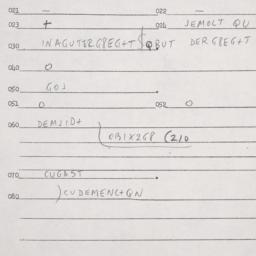 021 — 022 —
023 + 024 JEMOLT QU
030 INAGUTERGPEG+T QBUT DERGPEG+T
040 O
050 GOJ
051 O 052 O
060 DEMJID+
OBIX2GP (210
070 CUGAST
080 )CUDEMENC+GN